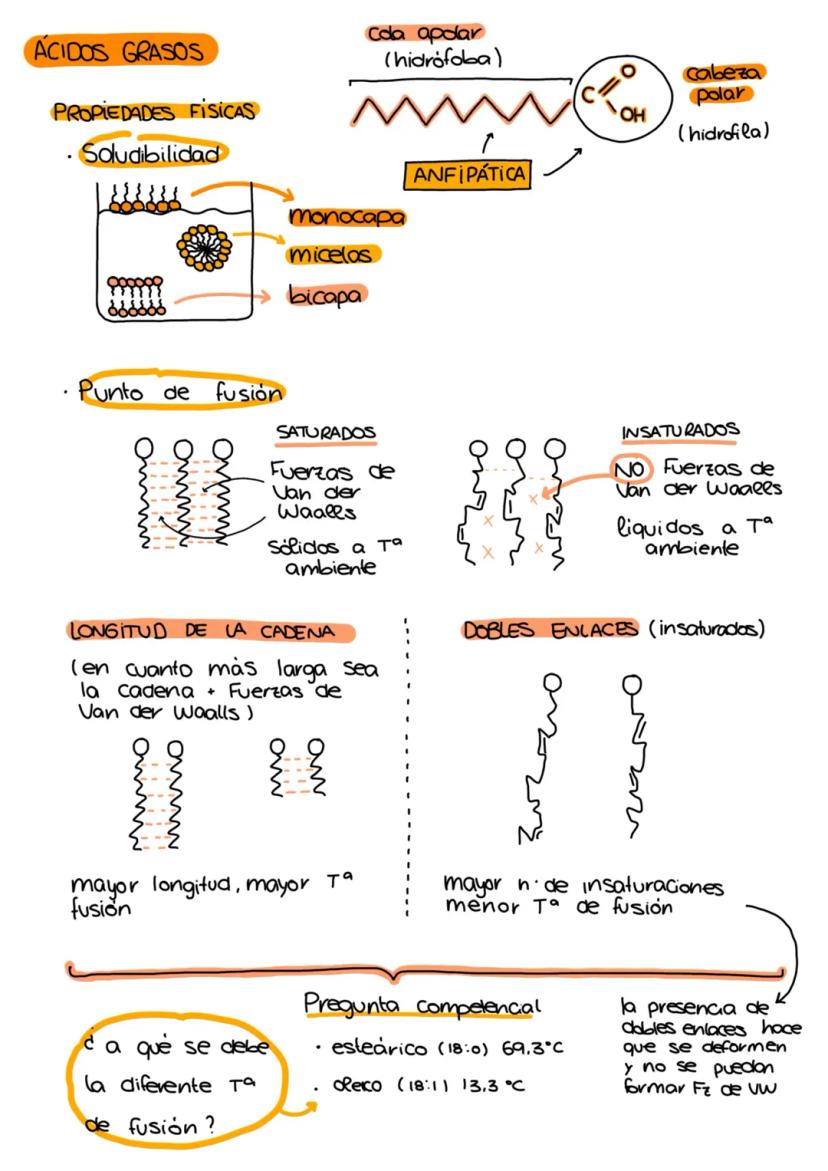 ÁCIDOS GRASOS
cola apolar
(hidrófoba)
C
O
OH
cabeza
polar
(hidrofila)
ANFIPÁTICA
PROPIEDADES FÍSICAS
· Soludibilidad
monocapa
micelas
bicapa
· Punto de fusión
SATURADOS
Fuerzas de
Van der
Waalls
sólidos a Tª
ambiente
INSATURADOS
NO Fuerzas de
Van der Waalls
líquidos a Tª
ambiente
LONGITUD DE LA CADENA
(en cuanto más larga sea
la cadena + Fuerzas de
Van der Waalls)
mayor longitud, mayor Tª
fusión
DOBLES ENLACES (insaturados)
mayor n· de insaturaciones
menor Tª de fusión
la presencia de
dobles enlaces hace
que se deformen
y no se puedan
formar Fz de VW
¿ a qué se debe
la diferente Tª
de fusión?
Pregunta competencial
· esteárico (18:0) 69,3°C
· oleico (18:1) 13,3 °C